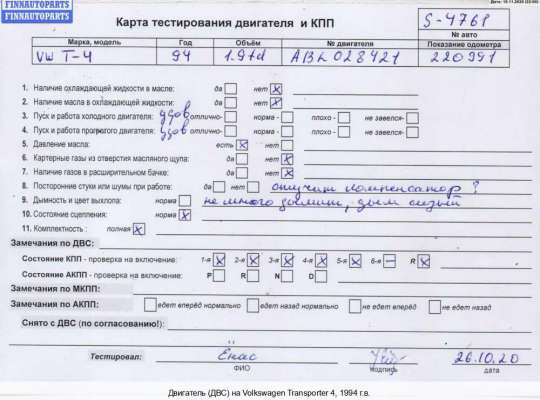 FINNAUTOPARTS
FINNAUTOPARTS
Карта тестирования двигателя и КПП
S-4768
№ авто
Марка, модель Год Объём № двигателя Показание одометра
VW T-4 94 1.9td ABL 028421 220991
1. Наличие охлаждающей жидкости в масле: да нет x
2. Наличие масла в охлаждающей жидкости: да нет x
3. Пуск и работа холодного двигателя: удов отлично- норма - плохо - не завелся-
4. Пуск и работа прогретого двигателя: удов отлично- норма - плохо - не завелся-
5. Давление масла: есть x нет
6. Картерные газы из отверстия масляного щупа: да нет x
7. Наличие газов в расширительном бачке: да нет x
8. Посторонние стуки или шумы при работе: да нет стучит компенсатор ?
9. Дымность и цвет выхлопа: норма немного дымит, дым сизый
10. Состояние сцепления: норма x
11. Комплектность : полная x
Замечания по ДВС:
Состояние КПП - проверка на включение: 1-я x 2-я x 3-я x 4-я x 5-я x 6-я – R x
Состояние АКПП - проверка на включение: P R N D
Замечания по МКПП:
Замечания по АКПП: едет вперёд нормально едет назад нормально не едет вперёд не едет назад
Снято с ДВС (по согласованию!):
Тестировал: Ёнас 26.10.20
ФИО подпись дата
Двигатель (ДВС) на Volkswagen Transporter 4, 1994 г.в.